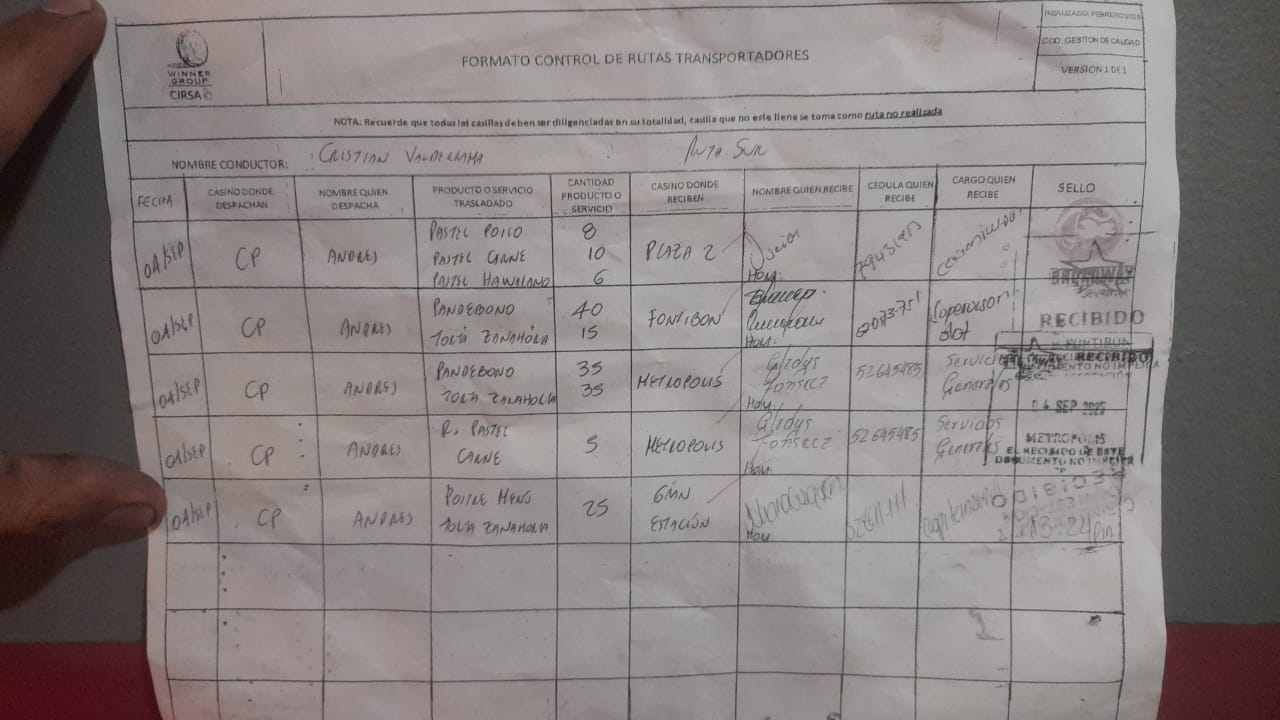 WINNER
GROUP
CIRSA
FORMATO CONTROL DE RUTAS TRANSPORTADORES
REALIZADO: FEBRERO
COD. GESTION DE CALIDAD
VERSION 1 DE 1
NOTA: Recuerde que todas las casillas deben ser diligenciadas en su totalidad, casilla que no este llena se toma como ruta no realizada
NOMBRE CONDUCTOR: CRISTIAN VALDERRAMA RUTA SUR
FECHA
CASINO DONDE DESPACHAN
NOMBRE QUIEN DESPACHA
PRODUCTO O SERVICIO TRASLADADO
CANTIDAD PRODUCTO O SERVICIO
CASINO DONDE RECIBEN
NOMBRE QUIEN RECIBE
CEDULA QUIEN RECIBE
CARGO QUIEN RECIBE
SELLO
04/SEP CP ANDRES PLAZA 2
PASTEL POLLO 8
PASTEL CARNE 10
PASTEL HAWAIANO 6
Hora:
04/SEP CP ANDRES FONTIBON Supervisor Slot
PANDEBONO 40
TORTA ZANAHORIA 15
Hora:
RECIBIDO
04/SEP CP ANDRES METROPOLIS Gladys Fonseca 52645485 Servicios Generales
PANDEBONO 35
TORTA ZANAHORIA 35
Hora:
RECIBIDO
04 SEP 2025
METROPOLIS
EL RECIBIDO DE ESTE
DOCUMENTO NO IMPLICA
04/SEP CP ANDRES METROPOLIS Gladys Fonseca 52645485 Servicios Generales
R. PASTEL
CARNE 5
Hora:
04/SEP CP ANDRES GMN ESTACIÓN
POSTRE MENS 25
TORTA ZANAHORIA
Hora:
RECIBIDO